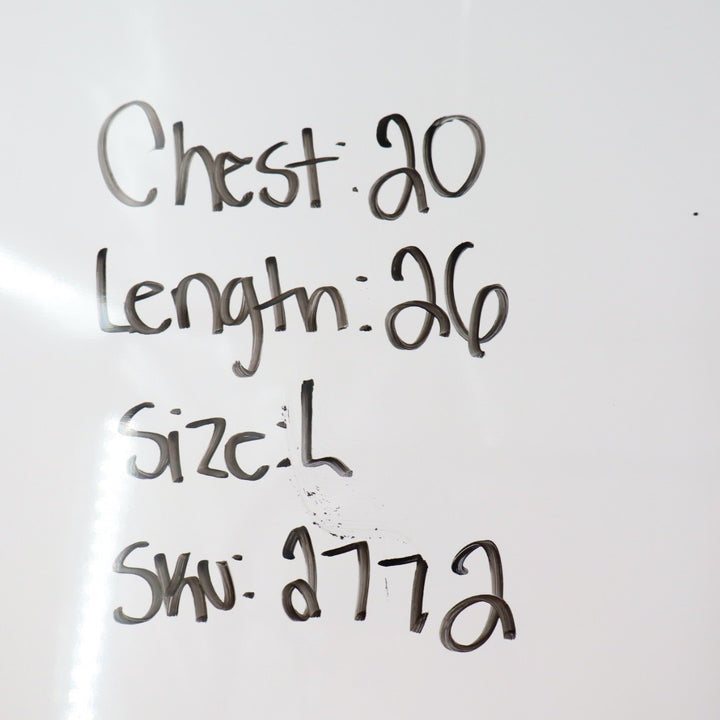 Chest: 20
Length: 26
Size: L
SKU: 2772